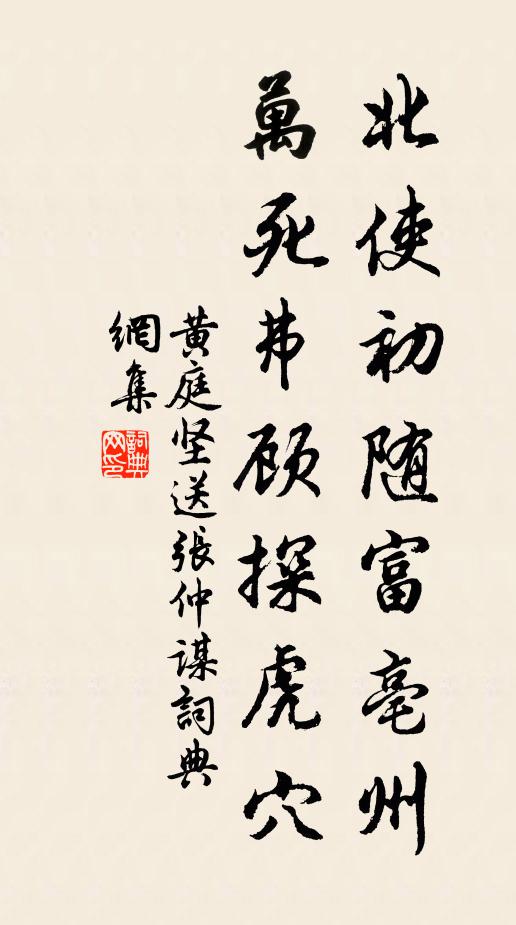 北使初随富亳州
萬死弗顾探虎穴
黄庭坚送張仲謀詞典
網集
詞典网印